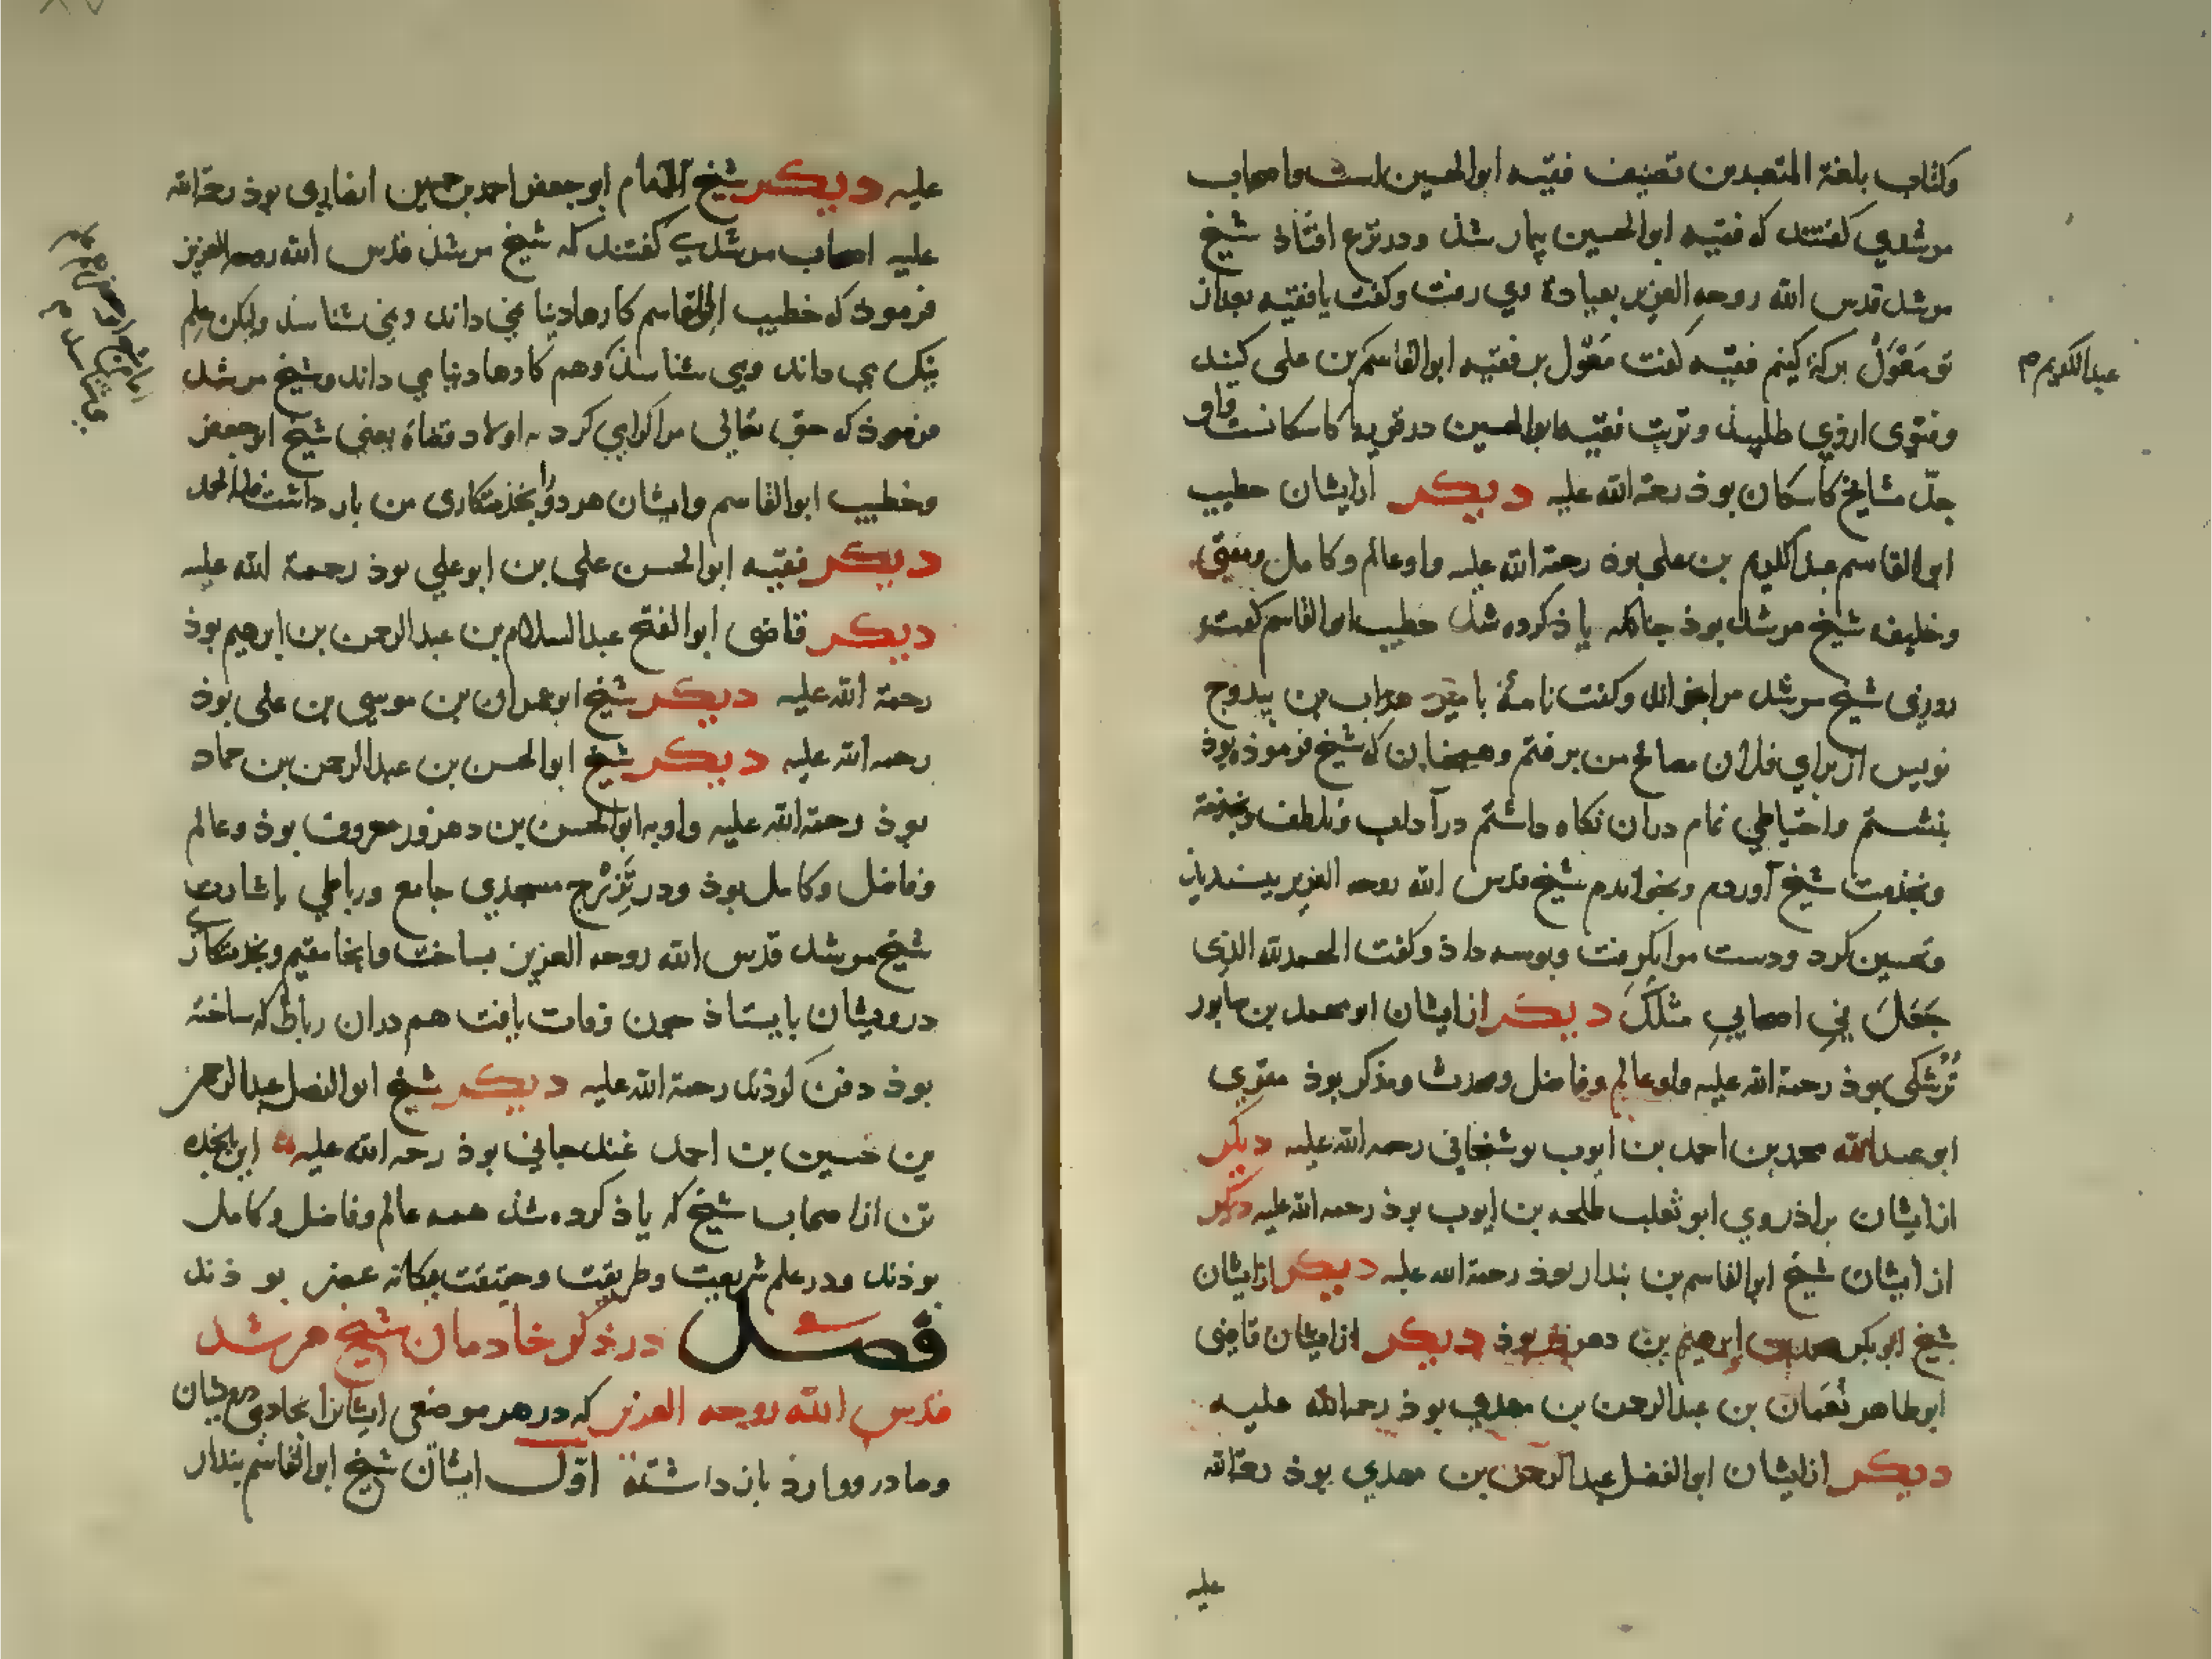 وکتاب بلغة المتعبدین تصنیف فقیه ابوالحسین است واصحاب
مرشدی کفتند که فقیه ابوالحسین بیمار شذ ودر نزع افتاذ شیخ
مرشد قدس الله روحه العزیز بعیادة وی رفت وکفت یا فقیه بعداز
تو مُعَوَّلْ برکه کنیم فقیه کفت مُعَوَّل بر فقیه ابوالقاسم بن علی کنید
عبدالکریم
وفتوی ازوی طلبیذ وتربت فقیه ابوالحسین در قریه کاسکانست واو
جدّ مشایخ کاسکان بوذ رحمة الله علیه دیکر ازایشان خطیب
ابوالقاسم عبدالکریم بن علی بوذ رحمة الله علیه واو عالم وکامل ومفتی
وخلیفه شیخ مرشد بوذ جنانکه یاذ کرده شذ خطیب ابوالقاسم کفت
روزی شیخ مرشد مرا بخواند وکفت نامۀ با بن بیدوج
نویس از برای فلان مصالح من برفتم وهمجنان که شیخ فرموذه بوذ
بنشستم واحتیاطی تمام دران نکاه داشتم درآداب وتلطف
وبخدمت شیخ آوردم وبخواندم شیخ قدس الله روحه العزیز بپسندیذ
وتحسین کرد ودست مرا بکرفت وبوسه داذ وکفت الحمدلله الذی
جَعَلَ فِی اصحابِی مثلَکَ دیکر ازایشان ابومحمد بن صابور
تُرْشکی بوذ رحمة الله علیه واو عالم وفاضل ومحدث ومذکر بوذ مقری
ابوعبدالله محمد بن احمد بن ایوب بوشنجانی رحمه الله علیه دیکر
ازایشان براذر وی ابو ثعلب طلحه بن ایوب بوذ رحمه الله علیه دیکر
ازایشان شیخ ابوالقاسم بن بندار بوذ رحمة الله علیه دیکر ازایشان
شیخ ابوبکر ابرهیم بن بوذ دیکر ازایشان قاضی
ابوطاهر نُعمَان بن عبدالرحمن بن مهدی بوذ رحمه الله علیه
دیکر ازایشان ابوالفضل عبدالرحمن بن مهدی بوذ رحمة الله
علیه
علیه دیکر شیخ الامام ابوجعفر احمد بن حسین انصاری بوذ رحمة الله
علیه اصحاب مرشدی کفتند که شیخ مرشذ قدس الله روحه العزیز
فرموذ که خطیب ابوالقاسم کارهادنیا نمی داند ونمی شناسذ ولیکن علم
نیک می داند ومی شناسذ وهم کارها دنیا می داند وشیخ مرشد
فرموذ که حق تعالی مرا کرامی کرد به اولاد قضاة یعنی شیخ ابوجعفر
وخطیب ابوالقاسم وایشان هردو را بخدمتکاری من باز داشت فلله الحمد
دیکر فقیه ابوالحسن علی بن ابوعلی بوذ رحمة الله علیه
دیکر قاضی ابوالفتح عبدالسلام بن عبدالرحمن بن ابرهیم بوذ
رحمة الله علیه دیکر شیخ ابوعمران بن موسی بن علی بوذ
رحمه الله علیه دیکر شیخ ابوالحسن بن عبدالرحمن بن حماد
بوذ رحمة الله علیه واو به ابوالحسن بن دهزور معروف بوذ وعالم
وفاضل وکامل بوذ ودر مسجدی جامع ورباطی باشارت
شیخ مرشد قدس الله روحه العزیز بساخت وانجا مقیم وبخدمتکاری
درویشان بایستاذ جون وفات یافت هم دران رباط که ساخته
بوذ دفن کردند رحمة الله علیه دیکر شیخ ابوالفضل عبدالرحمن
بن حسین بن احمد غندجانی بوذ رحمه الله علیه
تن ازاصحاب شیخ که یاذ کرده شذ همه عالم وفاضل وکامل
بوذند ودر علم شریعت وطریقت وحقیقت یکانه عصر بوذند
فصل در ذکر خادمان شیخ مرشد
قدس الله روحه العزیز که در هر موضعی ایشانرا بخادمی
وصادر ووارد باز داشته اوّل ایشان شیخ ابوالقاسم بندار